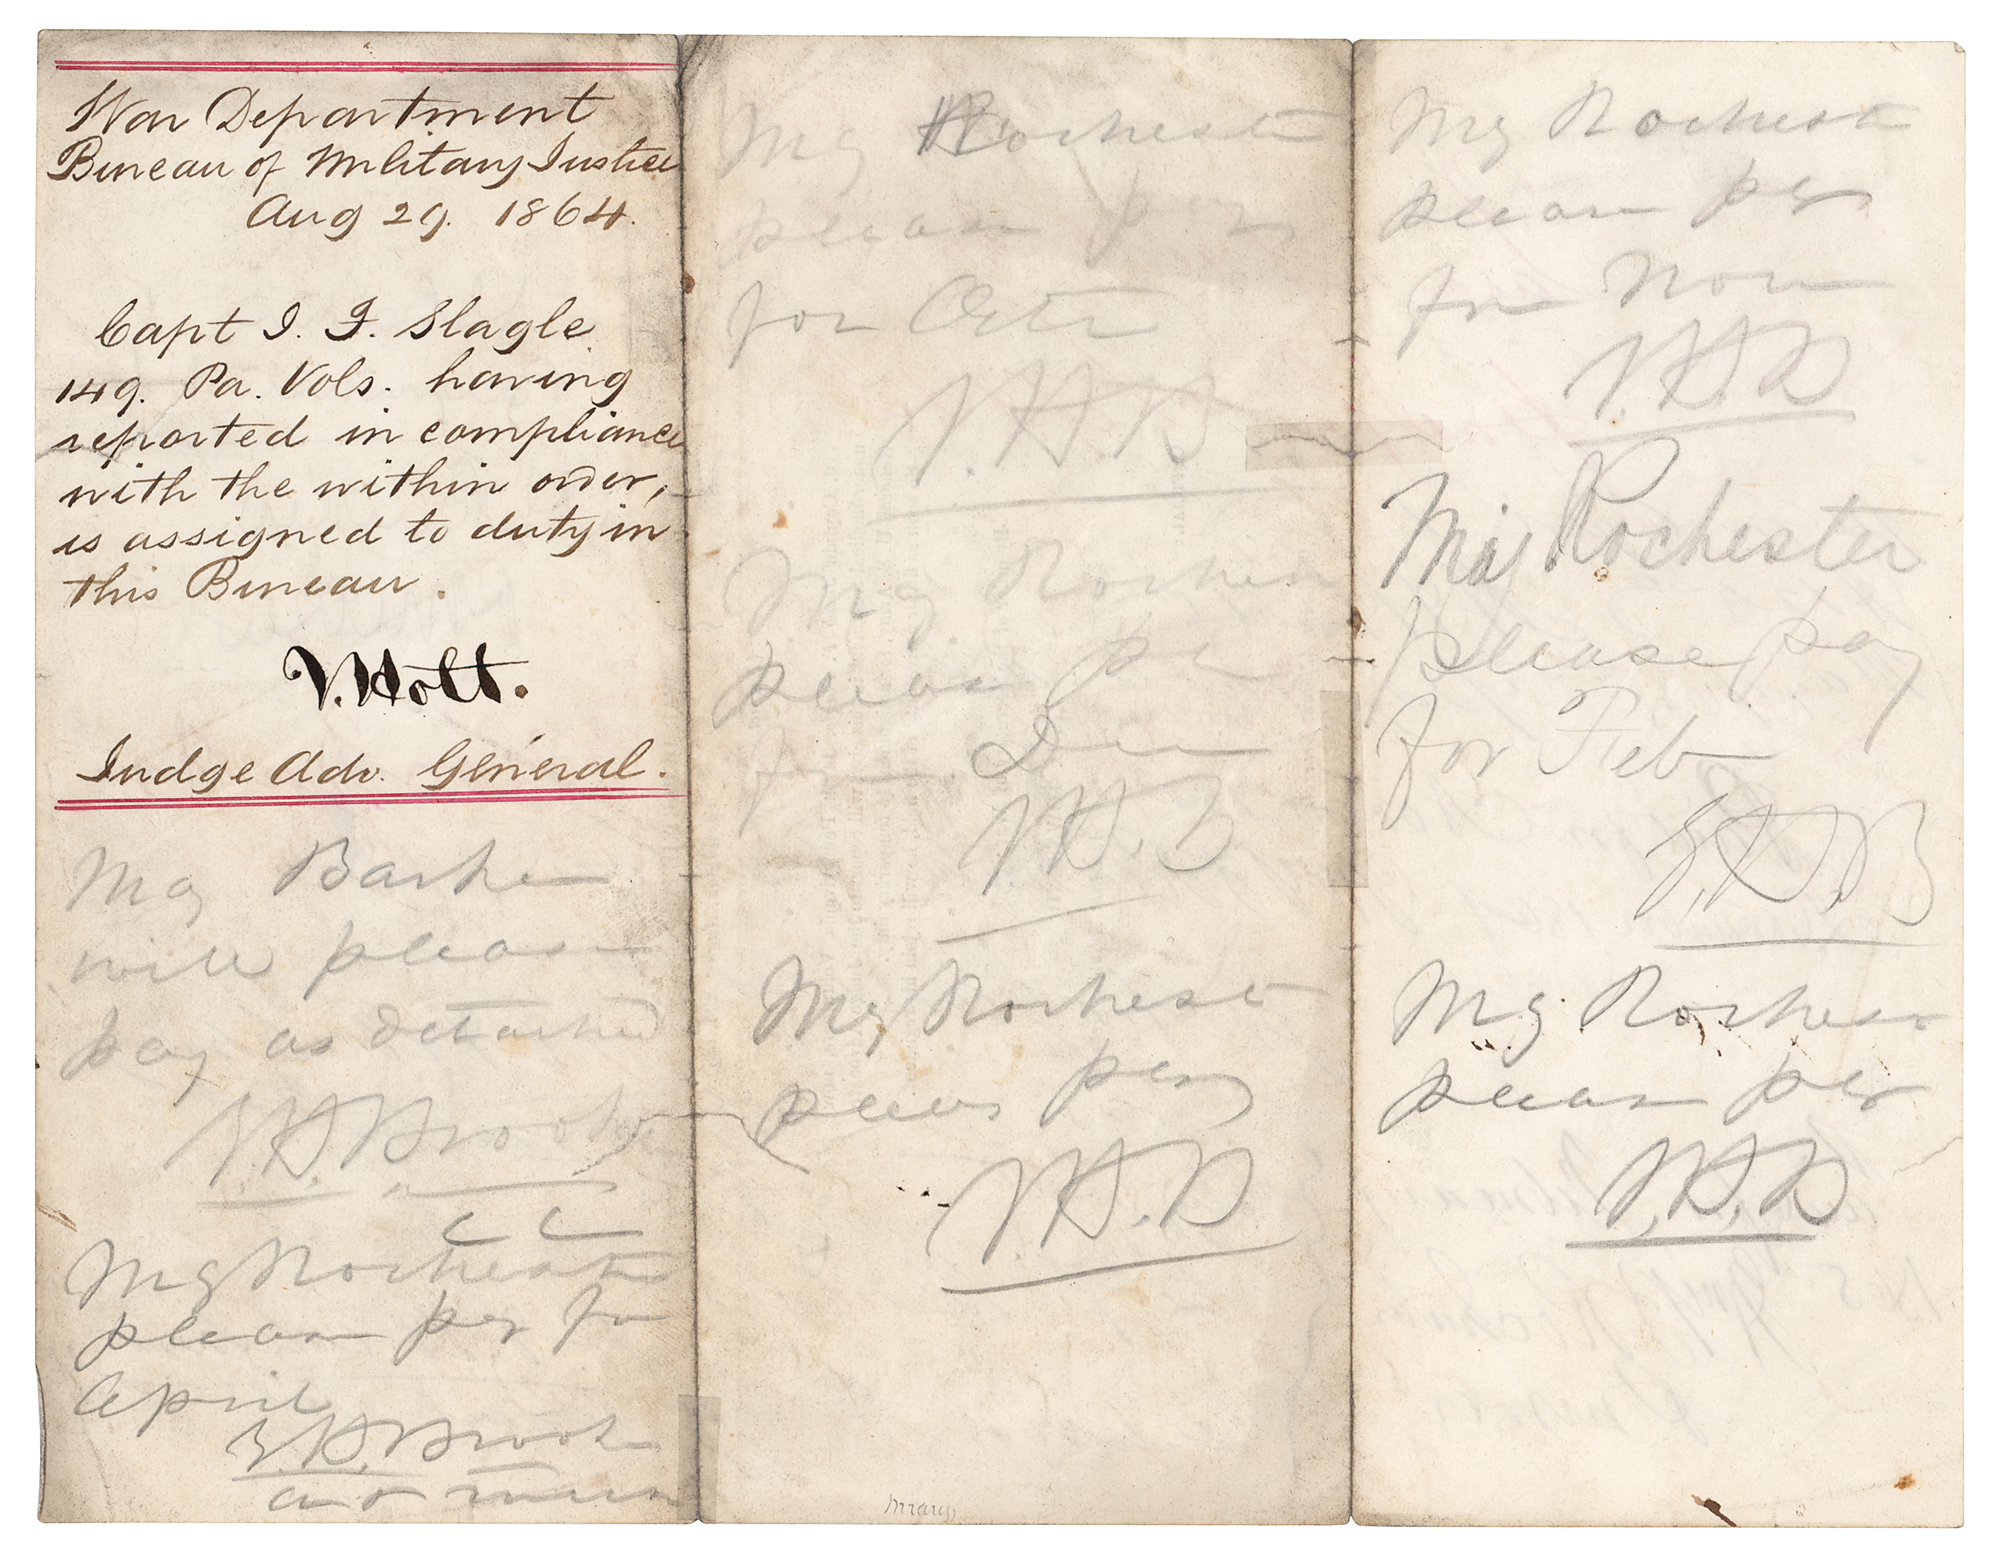 War Department
Bureau of Military Justice
Aug 29. 1864.
Capt J. F. Slagle
149. Pa. Vols. having
reported in compliance
with the within order,
is assigned to duty in
this Bureau.
J. Holt.
Judge Adv. General.
Maj
will please
pay as detached
J. H. B
Maj Rochester
please pay for
April
J. H. B
Maj Rochester
please pay
for Oct
J. H. B
Maj Rochester
please pay
for Dec
J. H. B
Maj Rochester
please pay
J. H. B
Maj Rochester
please pay
for Nov
J. H. B
Maj Rochester
please pay
for Feb
J. H. B
Maj Rochester
please pay
J. H. B